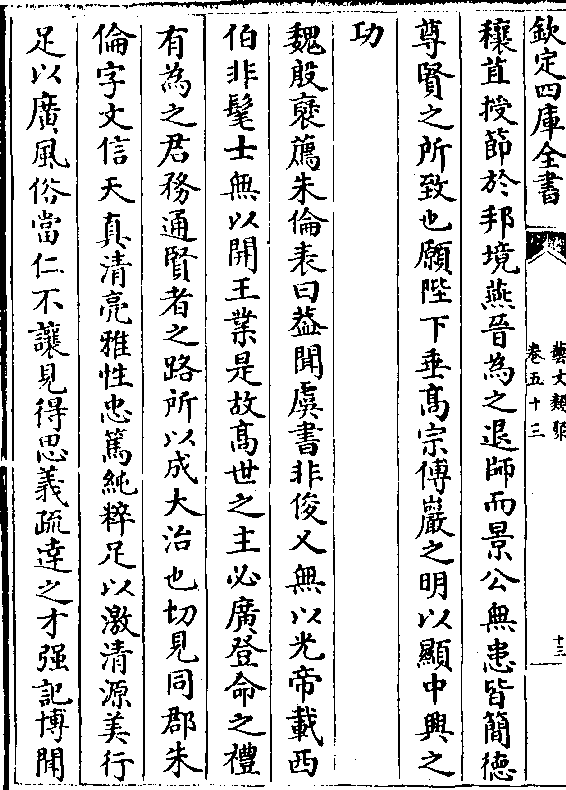 欽定四庫全書
藝文類聚
卷五十三
十三
穰苴授節於邦境燕晉為之退師而景公無患皆簡徳
尊賢之所致也願陛下垂髙宗傅巖之明以顯中興之
功
魏殷襃薦朱倫表曰葢聞虞書非俊乂無以光帝載西
伯非髦士無以開王業是故髙世之主必廣登命之禮
有為之君務通賢者之路所以成大治也切見同郡朱
倫字文信天真清亮雅性忠篤純粹足以激清源美行
足以廣風俗當仁不讓見得思義疏達之才强記博聞